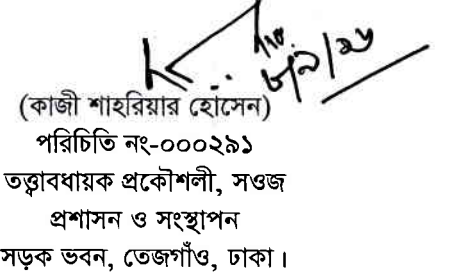 (কাজী শাহরিয়ার হোসেন)
পরিচিতি নং-০০০২৯১
তত্ত্বাবধায়ক প্রকৌশলী, সওজ
প্রশাসন ও সংস্থাপন
সড়ক ভবন, তেজগাঁও, ঢাকা।